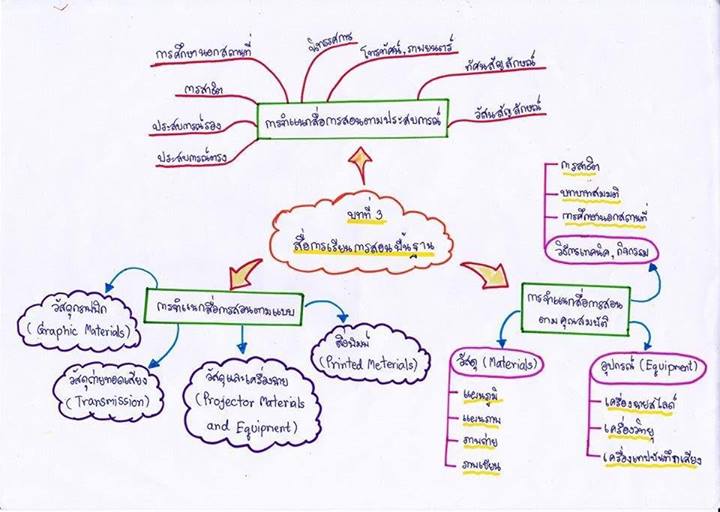 การศึกษานอกสถานที่
นิทรรศการ
โทรทัศน์, ภาพยนตร์
ทัศนสัญลักษณ์
การสาธิต
วัสนสัญลักษณ์
ประสบการณ์รอง
การจำแนกสื่อการสอนตามประสบการณ์
ประสบการณ์ตรง
บทที่ 3
สื่อการเรียนการสอนพื้นฐาน
การสาธิต
บทบาทสมมติ
การศึกษานอกสถานที่
วิธีการเทคนิค, กิจกรรม
การจำแนกสื่อการสอนตามแบบ
วัสดุกราฟฟิก
(Graphic Materials)
วัสดุถ่ายทอดเสียง
(Transmission)
วัสดุและเครื่องฉาย
(Projector Materials
and Equipment)
สื่อพิมพ์
(Printed Meterials)
การจำแนกสื่อการสอน
ตามคุณสมบัติ
วัสดุ (Materials)
แผนภูมิ
แผนภาพ
ภาพถ่าย
ภาพเขียน
อุปกรณ์ (Equipment)
เครื่องฉายสไลด์
เครื่องวิทยุ
เครื่องเทปบันทึกเสียง